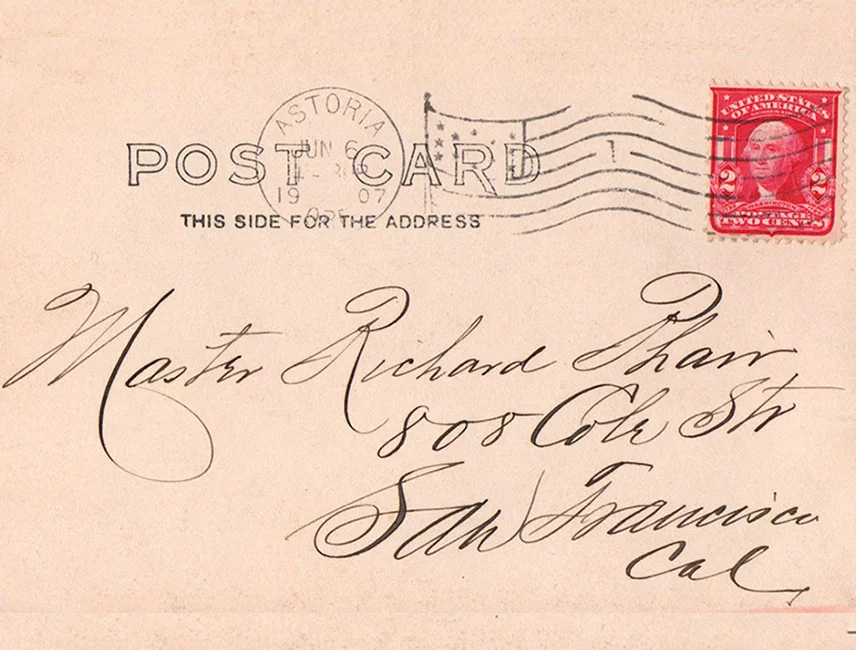 ASTORIA
JUN 6
19 07
ORE
POST CARD
THIS SIDE FOR THE ADDRESS
1
UNITED STATES
OF AMERICA
2 2
WASHINGTON
POSTAGE
TWO CENTS
Master Richard Phair
808 Cole Str
San Francisco
Cal